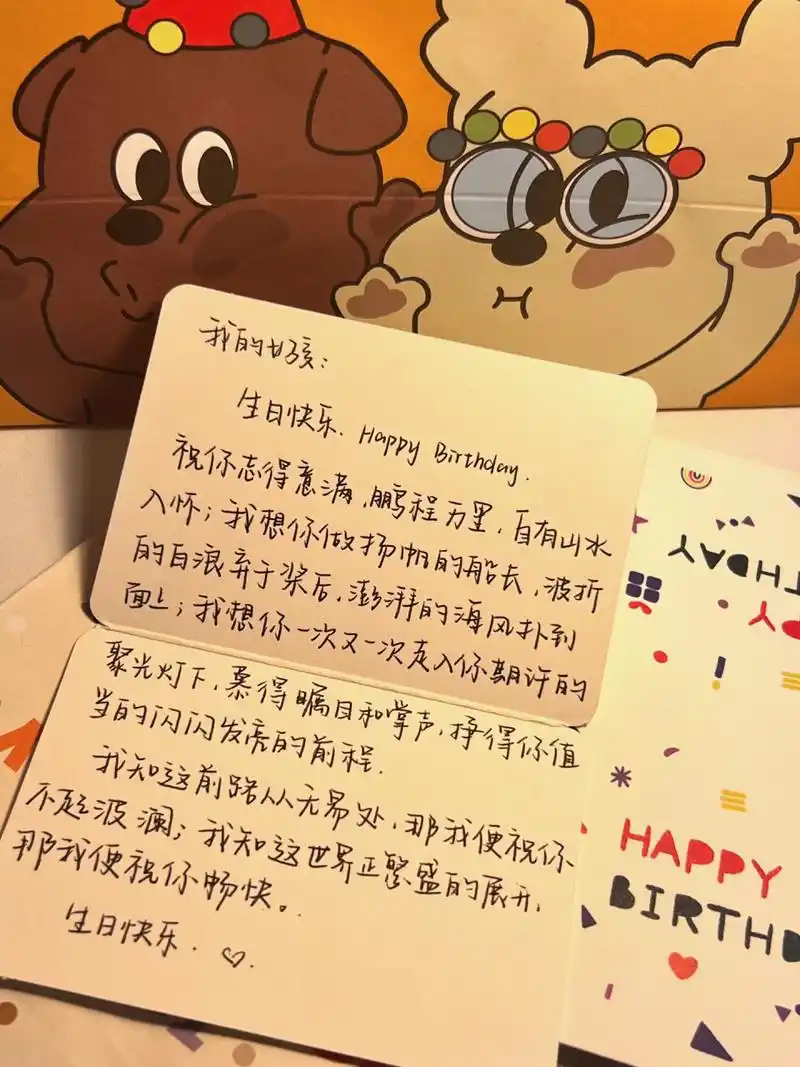 我的女孩：
生日快乐. Happy Birthday.
祝你志得意满，鹏程万里，自有山水
入怀；我想你做扬帆的船长，波折
的白浪弃于桨后，澎湃的海风扑到
面上；我想你一次又一次走入你期许的
聚光灯下，慕得瞩目和掌声，挣得你值
当的闪闪发亮的前程.
我知这前路从无易处，那我便祝你
不起波澜；我知这世界正繁盛的展开，
那我便祝你畅快。
生日快乐. ♡.
HAPPY
BIRTHD